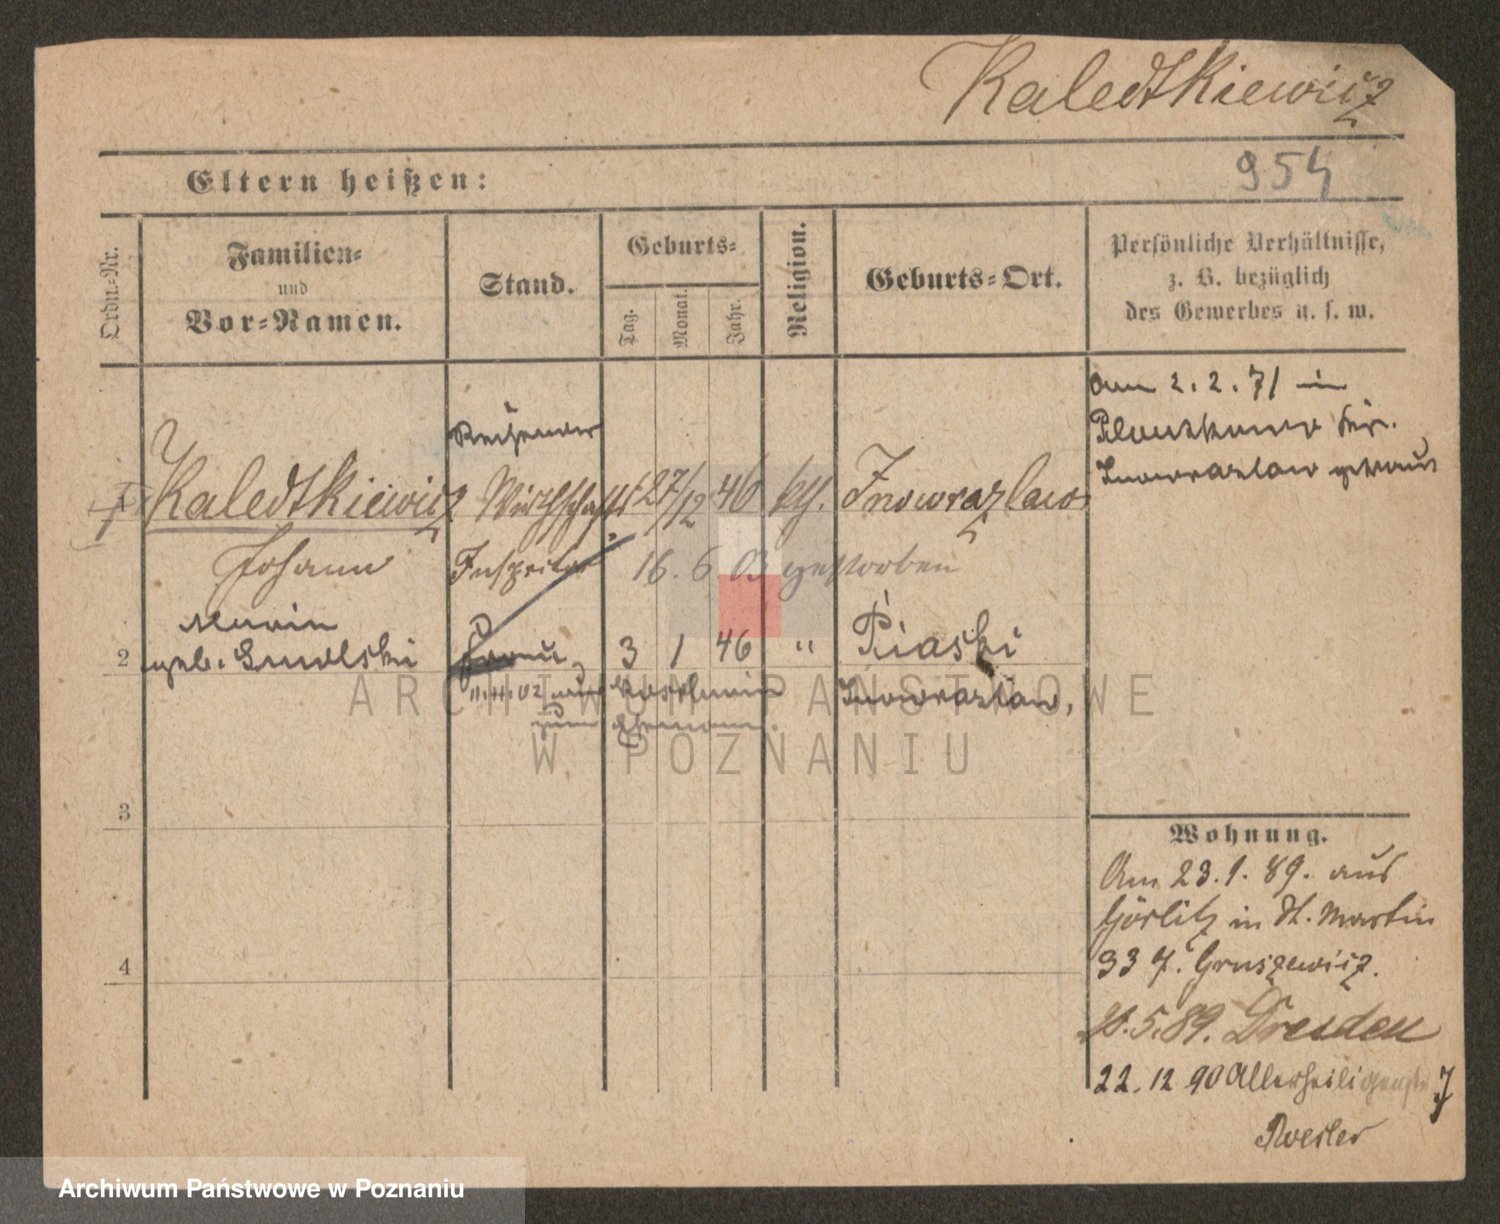 Kaledtkiewicz
954
Eltern heißen:
Ordn.-Nr.
Familien-
und
Vor-Namen.
Stand.
Geburts-
Tag.
Monat.
Jahr.
Religion.
Geburts-Ort.
Persönliche Verhältnisse,
z. B. bezüglich
des Gewerbes u. s. w.
Am 2. 2. 71 in
Inowrazlaw getraut
Reisender
1 Kaledtkiewicz Wirthschafts 27/12 46 kth. Inowrazlaw
Johann Inspektor 16. 6 03 gestorben
Maria
2 geb. Smolski Frau 3 1 46 " Piaski
11.11.02 Inowrazlaw.
zum Ehemann.
3
4
Wohnung.
Am 23.1.89. aus
Görlitz in St. Martin
33 Gruszewicz.
5.89. Dresden
22. 12 90 Allerheiligenstr
Roesler
ARCHIWUM PAŃSTWOWE
W POZNANIU
Archiwum Państwowe w Poznaniu